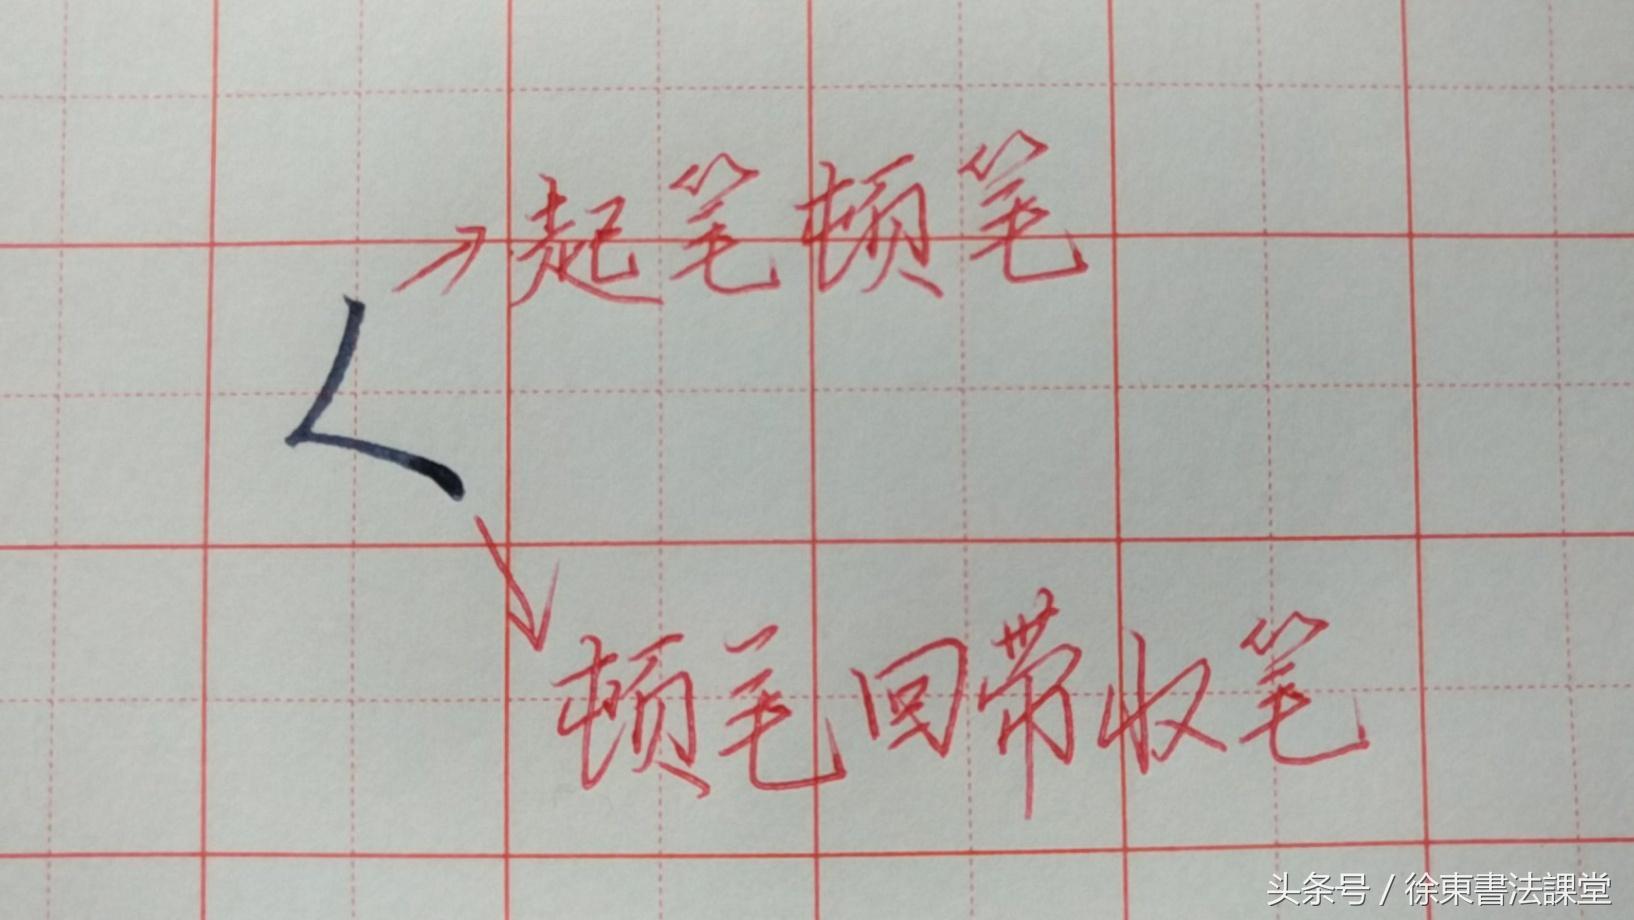 起笔顿笔
顿毛回带收笔
头条号 / 徐東書法課堂